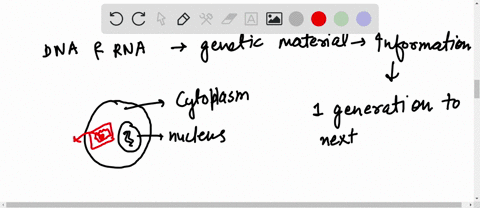 DNA & RNA → genetic material → Information
↓
Cytoplasm
1 generation to
nucleus
next